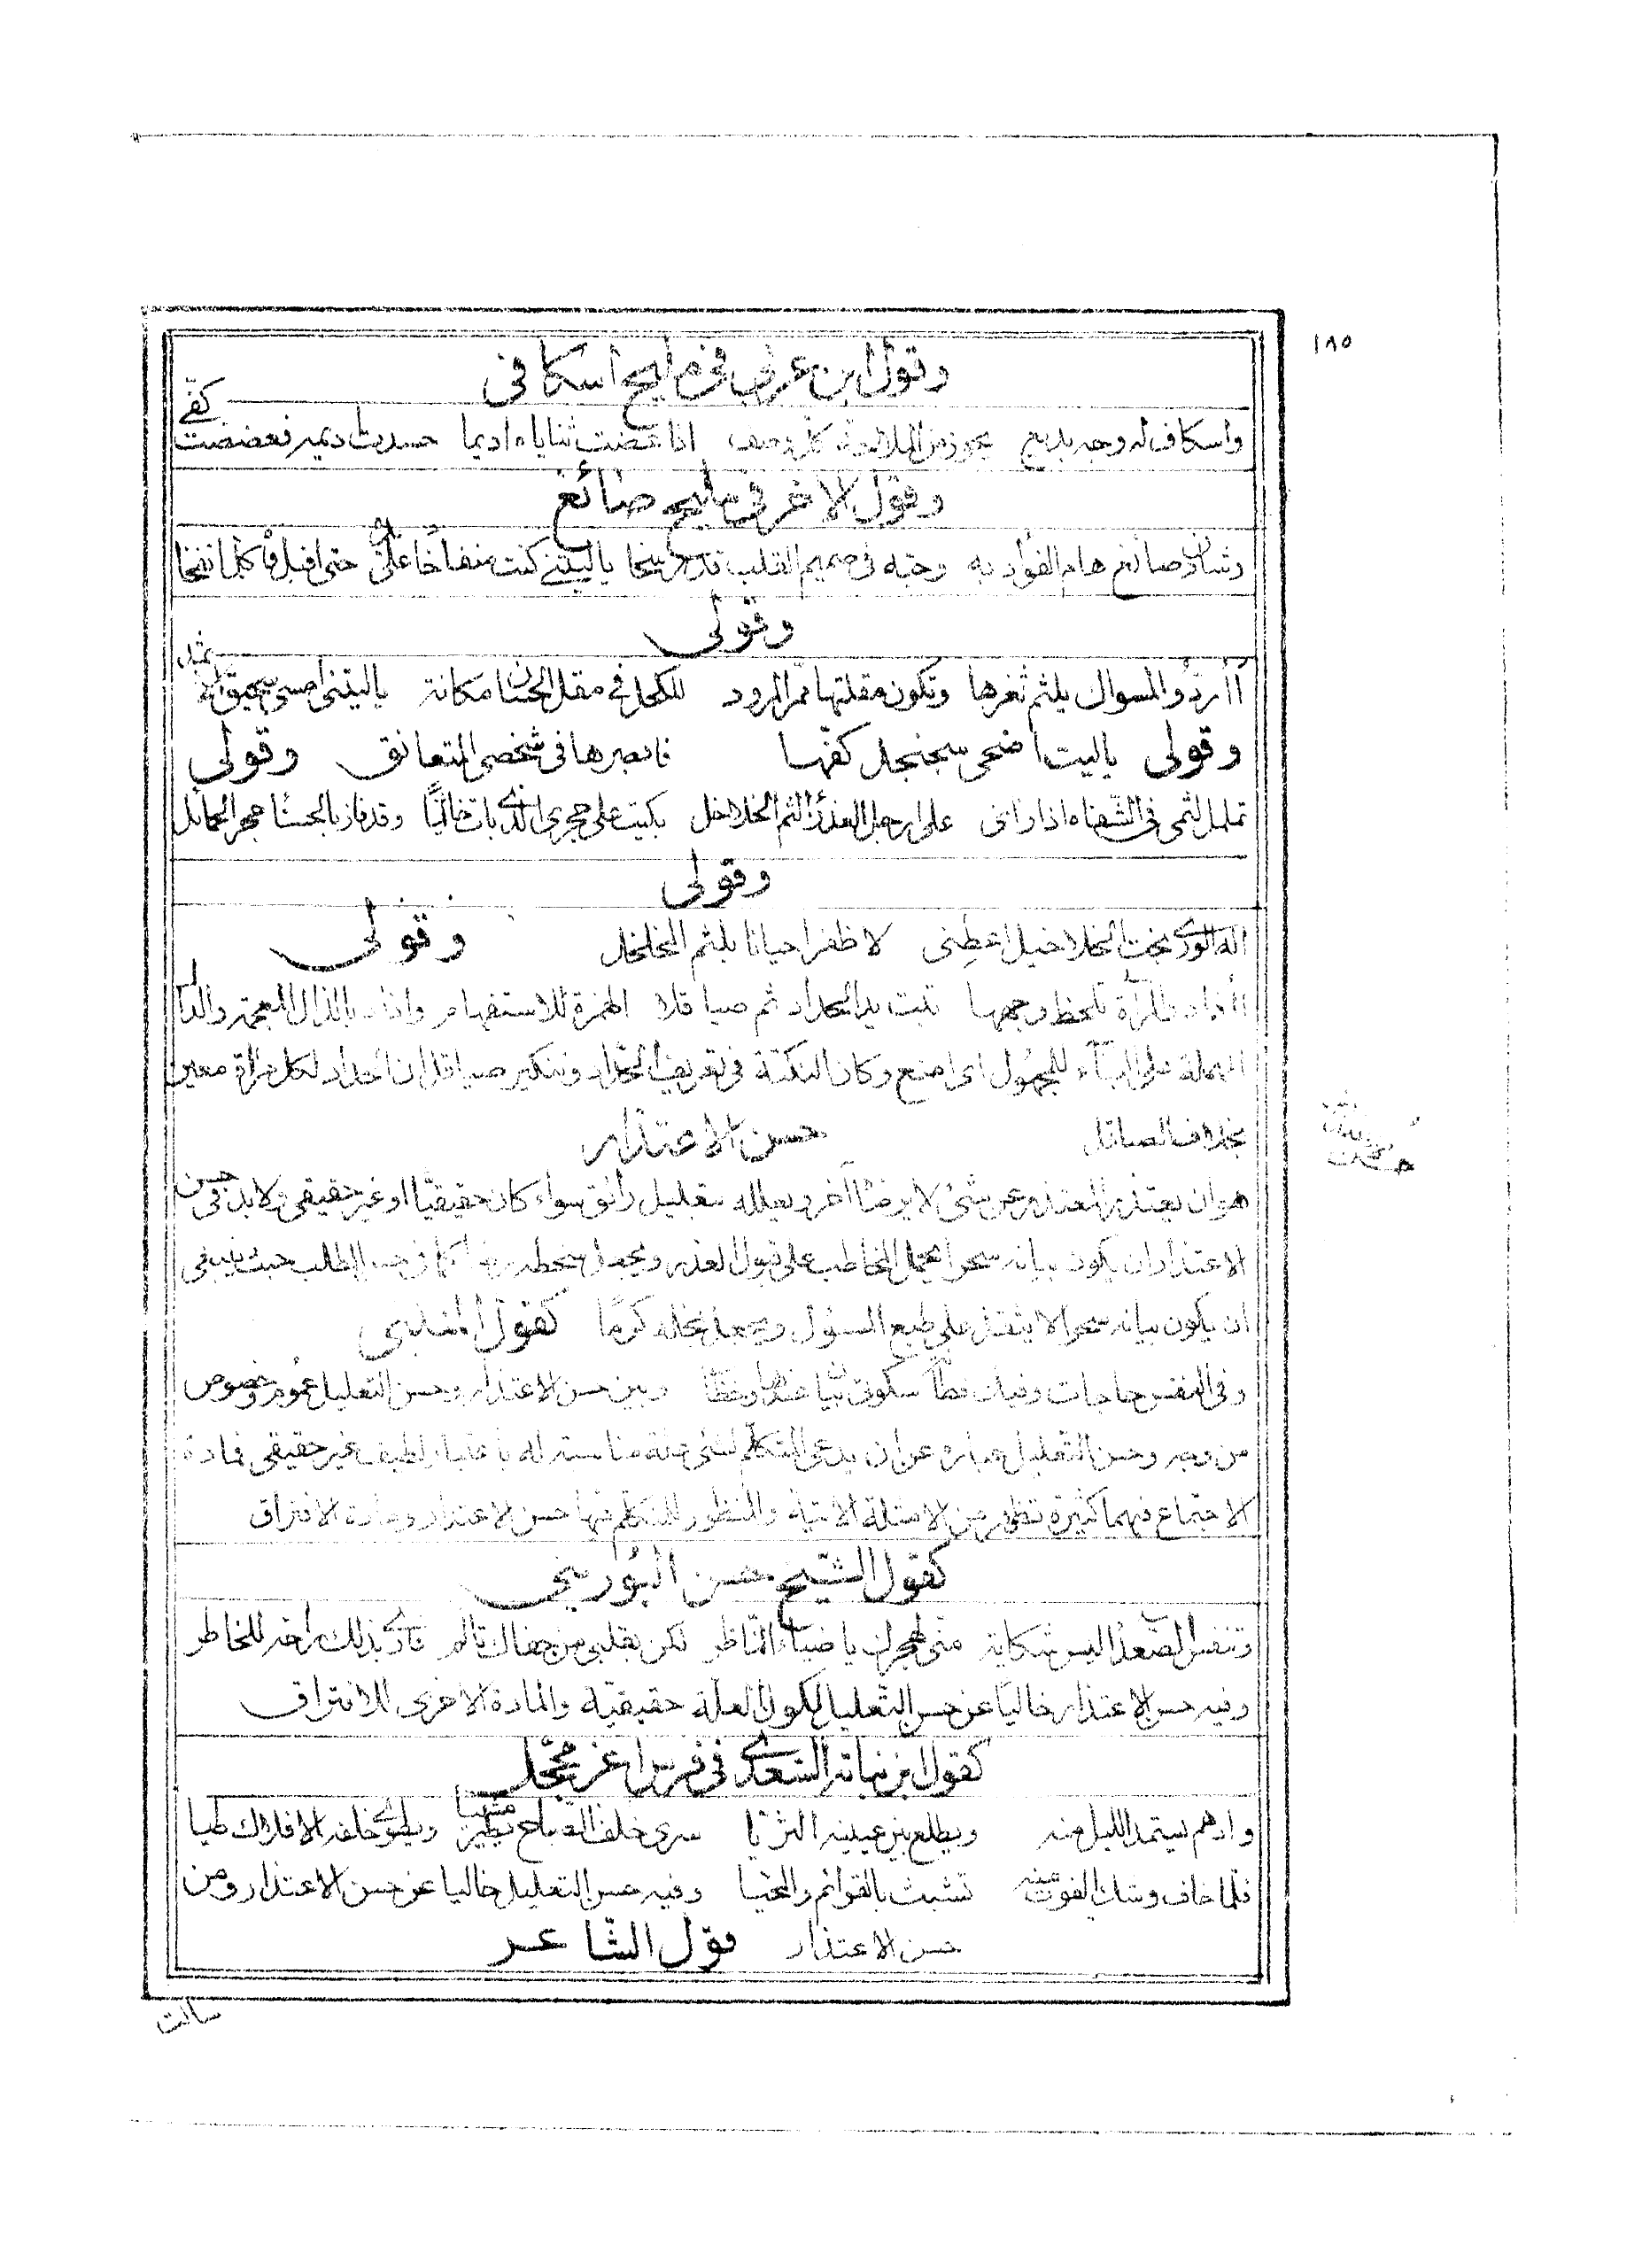 ١٨٥
وقول ابن عربي في مليح اسكافي
واسكاف له وجه بديع يحوز من الملاحة كل وصف اذا عضت ثناياه اديما حسدت اديمه فعضضت كفي
وقول الاخر في مليح صائغ
وشادن صائغ هام الفؤاد به وحبه في صميم القلب قد رسخا يا ليتني كنت منفاخا على فمه حتى اقبل فاه كلما نفخا
وقولي
أأرد والمسواك يلثم ثغرها وتكون مقلتها ممر المرود للكحل في مقل الحسان مكانة يا ليتني امسي سحيق
وقولي يا ليت اضحى سجنجل كفها فابصرها في شخصي المتعانق وقولي
تململ لثمي في الشفاه اذا راى على ارجل الغيد التثم الخلاخل بكيت على حجري الذي بات خاليا وقد فاز بالحسنا حجر الحمائل
وقولي
اله الورى بخت الخلاخيل اعطني لاظفر احيانا بلثم المخلخل وقولي
أأذاد والمرآة تلحظ وجهها تبت يد الحداد ثم صياقلا الهمزة للاستفهام واذاد بالذال المعجمة والدال
المهملة على البناء للمجهول اى امنع وكان النكتة في تعريف الحداد وتنكير صياقلا ان الحداد لكل مراة معين
بخلاف الصياقل حسن الاعتذار
هو ان يعتذر المعتذر عن شئ لا يرضاه آخر ويعلله بتعليل رائق سواء كان حقيقيا او غير حقيقي ولابد في حسن
الاعتذار ان يكون بيانه سحرا يحمل المخاطب على قبول العذر ويجعل سخطه رضا كما في حسن الطلب حيث ينبغي
ان يكون بيانه سحرا لا يثقل على طبع المسؤل ويجعل بخله كرما كقول المتنبي
وفي النفس حاجات وفيك فطانة سكوتي بيان عندها وخطاب وبين حسن الاعتذار وحسن التعليل عموم وخصوص
من وجه وحسن التعليل عبارة عن ان يدعى المتكلم لشئ علة مناسبة له باعتبار لطيف غير حقيقي فمادة
الاجتماع فيهما كثيرة تظهر من الامثلة الاتية والمنظور للمتكلم فيها حسن الاعتذار ومادة الافتراق
كقول الشيخ حسن البوريني
وتنفس الصعداء ليس شكاية مني لهجرك يا ضياء الناظر لكن بقلبي من جفاك تالم فارى بذلك راحة للخاطر
وفيه حسن الاعتذار خاليا عن حسن التعليل لكون العلة حقيقية والمادة الاخرى للافتراق
كقول ابن نباتة السعدي في فرس اغر محجل
وادهم يستمد الليل منه ويطلع بين عينيه الثريا سرى خلف الصباح يطير مشيا ويطوى خلفه الافلاك طيا
فلما خاف وشك الفوت منه تشبث بالقوائم والمحيا وفيه حسن التعليل خاليا عن حسن الاعتذار ومن
حسن الاعتذار قول الشاعر
سالت